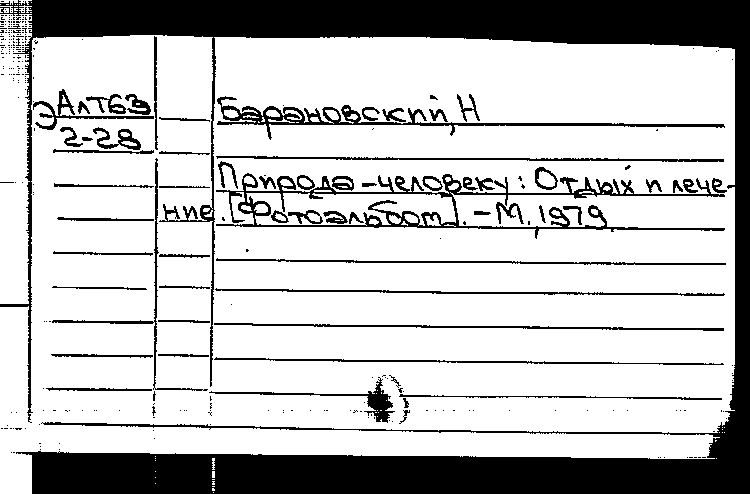 Э АлТ63
2-28
Барановский, Н
Природа - человеку : Отдых и лече-
ние. [Фотоальбом]. - М., 1979